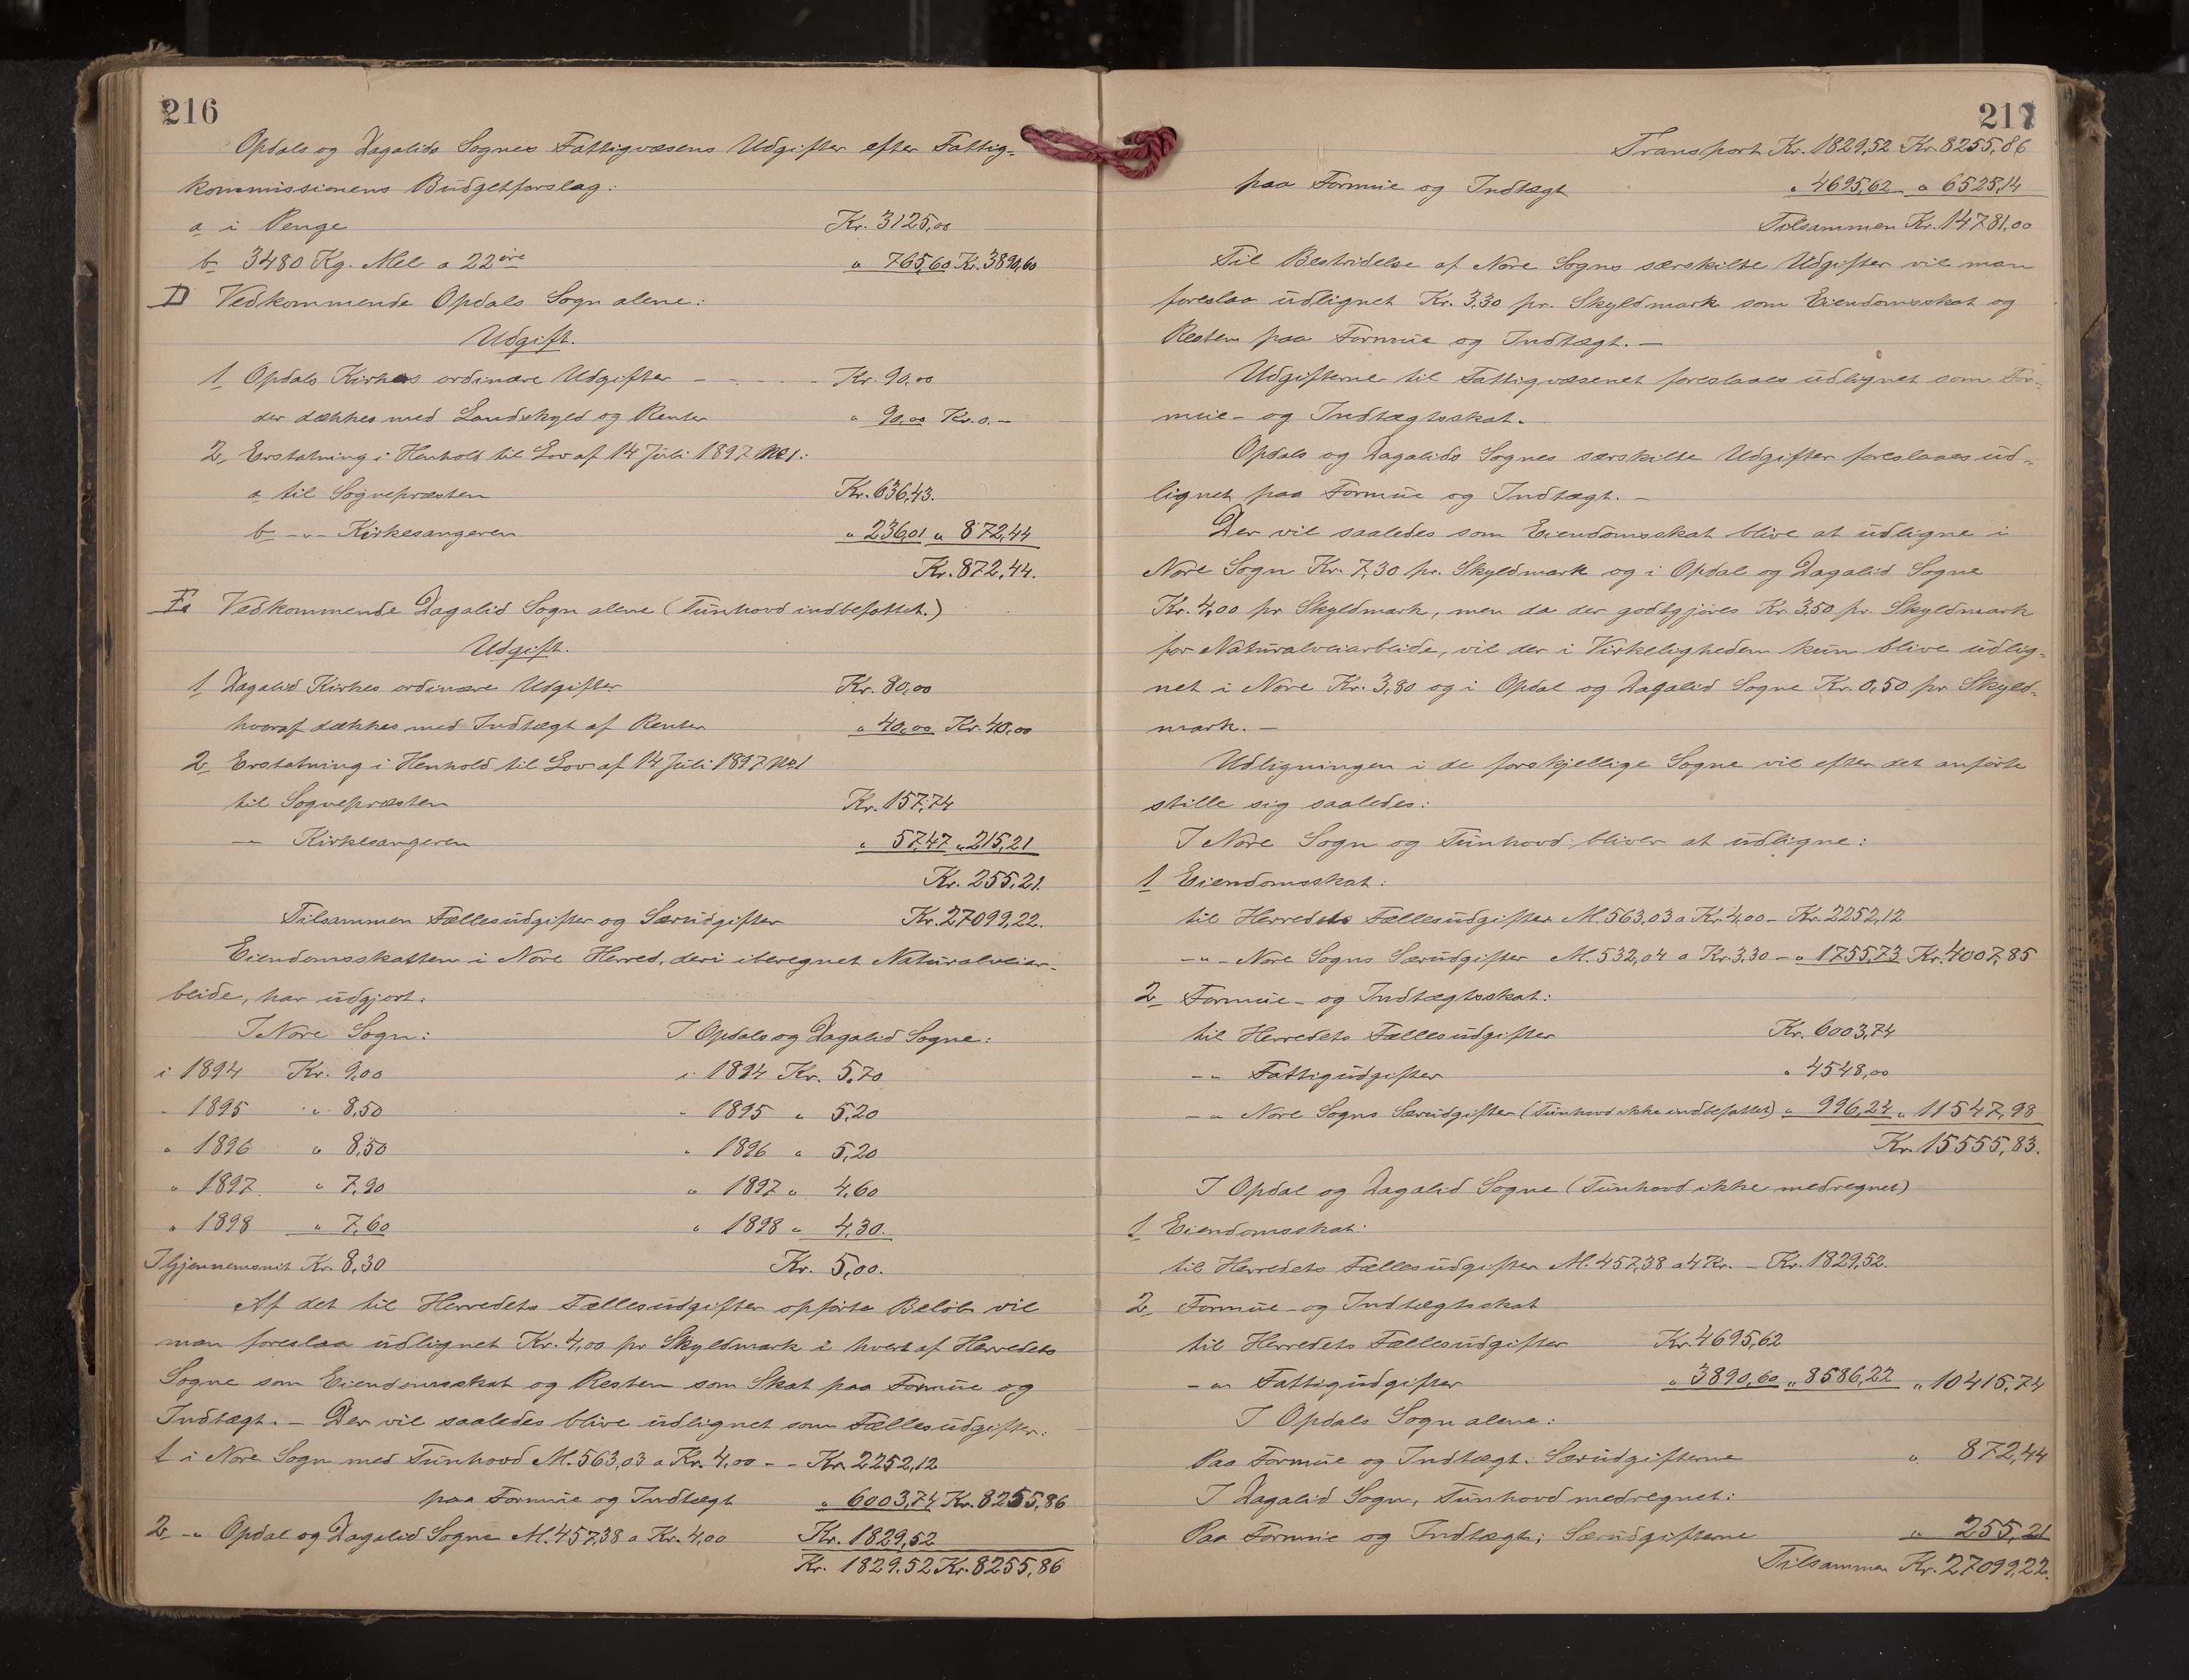 216
Opdals og Dagalids Sognes Fattigvæsens Udgifter efter Fattig-
kommissionens Budgetforslag:
a i Penge Kr. 3125,00
b 3480 Kg. Mel a 22 øre " 765,60 Kr. 3890,60
D Vedkommende Opdals Sogn alene:
Udgift.
1 Opdals Kirkes ordinære Udgifter - - - - Kr. 90,00
der dækkes med Landskyld og Renter " 90,00 Kr. 0.-
2, Erstatning i Henhold til Lov af 14 Juli 1897 No 1:
a til Sognepræsten Kr. 636,43.
b -"- Kirkesangeren " 236,01 " 872,44
Kr. 872,44.
E Vedkommende Dagalid Sogn alene (Tunhovd indbefattet.)
Udgift.
1 Dagalid Kirkes ordinære Udgifter Kr. 80,00
hvoraf dækkes med Indtægt af Renter " 40,00 Kr. 40,00
2 Erstatning i Henhold til Lov af 14 Juli 1897 No 1
til Sognepræsten Kr. 157,74
-" Kirkesangeren " 57,47 " 215,21
Kr. 255,21.
Tilsammen Fællesudgifter og Særudgifter Kr. 27099,22.
Eiendomsskatten i Nore Herred, deri iberegnet Naturalveiar-
beide, har udgjort.
I Nore Sogn: I Opdals og Dagalid Sogne:
i 1894 Kr. 9,00 i 1894 Kr. 5,70
" 1895 " 8,50 " 1895 " 5,20
" 1896 " 8,50 " 1896 " 5,20
" 1897 " 7,90 " 1897 " 4,60
" 1898 " 7,60 " 1898 " 4,30.
I Gjennemsnit Kr. 8,30 Kr. 5,00.
Af det til Herredets Fællesudgifter opførte Beløb vil
man foreslaa udlignet Kr. 4,00 pr Skyldmark i hvert af Herredets
Sogne som Eiendomsskat og Resten som Skat paa Formue og
Indtægt. - Der vil saaledes blive udlignet som Fællesudgifter:
1 i Nore Sogn med Tunhovd M. 563,03 a Kr. 4,00 - - Kr. 2252,12
paa Formue og Indtægt " 6003,74 Kr. 8255,86
2 -" Opdal og Dagalid Sogne M. 457,38 a Kr. 4,00 Kr. 1829,52
Kr. 1829,52 Kr. 8255,86
217
Transport Kr. 1829,52 Kr. 8255,86
paa Formue og Indtægt " 4695,62 " 6525,14
Tilsammen Kr. 14781,00
Til Bestridelse af Nore Sogns særskilte Udgifter vil man
foreslaa udlignet Kr. 3,30 pr. Skyldmark som Eiendomsskat og
Resten paa Formue og Indtægt. -
Udgifterne til Fattigvæsenet foreslaaes udlignet som For-
mue- og Indtægtsskat.
Opdals og Dagalids Sognes særskilte Udgifter foreslaaes ud-
lignet paa Formue og Indtægt. -
Der vil saaledes som Eiendomsskat blive at udligne i
Nore Sogn Kr. 7,30 pr. Skyldmark og i Opdal og Dagalid Sogne
Kr. 4,00 pr Skyldmark, men da der godtgjøres Kr. 3,50 pr. Skyldmark
for Naturalveiarbeide, vil der i Virkeligheden kun blive udlig-
net i Nore Kr. 3,80 og i Opdal og Dagalid Sogne Kr. 0,50 pr Skyld-
mark. -
Udligningen i de forskjellige Sogne vil efter det anførte
stille sig saaledes:
I Nore Sogn og Tunhovd bliver at udligne:
1 Eiendomsskat:
til Herredets Fællesudgifter M. 563,03 a Kr. 4,00 - Kr. 2252,12
-"- Nore Sogns Særudgifter M. 532,04 a Kr 3.30 - " 1755,73 Kr. 4007,85
2 Formue- og Indtægtsskat:
til Herredets Fællesudgifter Kr. 6003,74
-" Fattigudgifter " 4548,00
-" Nore Sogns Særudgifter (Tunhovd ikke indbefattet) " 996,24 " 11547,98
Kr. 15555,83.
I Opdal og Dagalid Sogne (Tunhovd ikke medregnet)
1 Eiendomsskat:
til Herredets Fællesudgifter M. 457,38 a 4 Kr. - Kr. 1829,52.
2 Formue- og Indtægtsskat
til Herredets Fællesudgifter Kr. 4695,62
-"- Fattigudgifter " 3890,60 " 8586,22 " 10415,74
I Opdals Sogn alene:
Paa Formue og Indtægt: Særudgifterne " 872,44
I Dagalid Sogn, Tunhovd medregnet:
Paa Formue og Indtægt; Særudgifterne " 255,21
Tilsammen Kr. 27099,22.